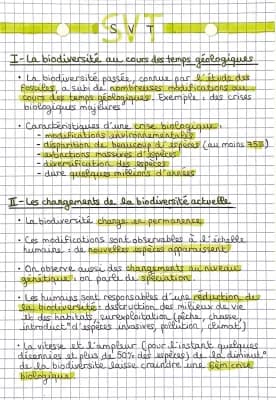 SVT
I - La biodiversité au cours des temps géologiques
• La biodiversité passée, connue par l'étude des
fossiles, a subi de nombreuses modifications au
cours des temps géologiques. Exemple : des crises
biologiques majeures
• Caractéristiques d'une crise biologique :
- modifications environnementales
- disparition de beaucoup d'espèces (au moins 75%)
- extinctions massives d'espèces
- diversification des espèces
- dure quelques millions d'années
II - Les changements de la biodiversité actuelle
• La biodiversité change en permanence
• Ces modifications sont observables à l'échelle
humaine : de nouvelles espèces apparaissent
• On observe aussi des changements au niveau
génétique : on parle de spéciation
• Les humains sont responsables d'une réduction de
la biodiversité : destruction des milieux de vie
et des habitats, surexploitation (pêche, chasse,
introduct° d'espèces invasives, pollution, climat)
• La vitesse et l'ampleur (pour l'instant quelques
décennies et plus de 50% des espèces) de la diminut°
de la biodiversité laisse craindre une 6èm crise
biologique